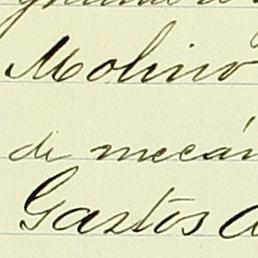 Molino
de mecán
Gastos